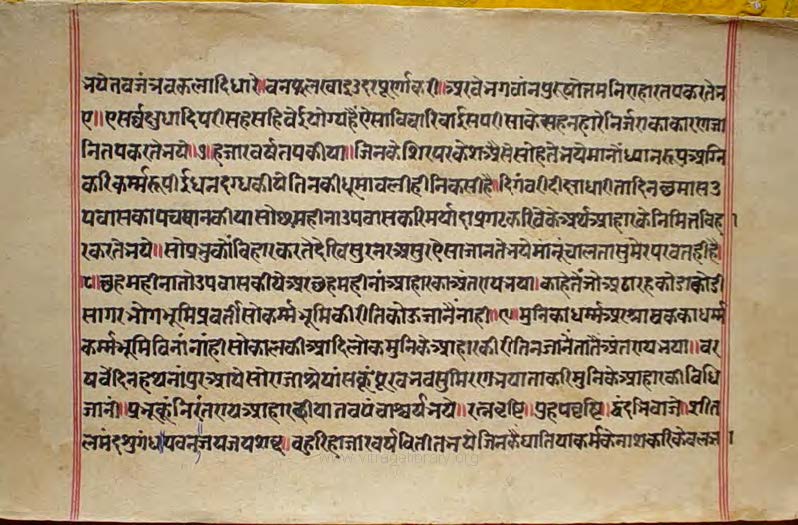 नयेतबजंत्रवकलादिधारे॥वनफलखाइउदरपूर्णाकरी॥अरवेनगवांनपुरुषोत्तमनिराहारतपकरतेन
ए॥एसर्व्वक्षुधादिपरीसहसहिवेईयोग्यहैंऐसाविचारिबाईसपरीसाकेसहनहारेनिर्जराकाकारणजा
नितपकरतेनये॥७॥हजारवर्षतपकीया॥जिनकेशिरपरकेशअैसेसोहतेनयेमानोंध्यानरूपअग्नि
करिकर्म्मरूपीईंधनदग्धकीयेतिनकीधूमावलीहीनिकसीहै॥दिगंबरीदीक्षाधारीतादिनछमासउ
पवासकापचषानकीयासोछमहीनाउपवासकरिमर्यादाप्रगटकरिवेकेअर्थअहारकेनिमित्तविह
रकरतेनये॥सोप्रनुकोंविहारकरतेदेखिसुरनरअसुरऐसाजानतेनयेमांनूंचालतासुमेरपरवतहीहै
॥८॥छहमहीनातोउपवासकीयेअरछहमहीनांआहारकाअंतरायनया॥काहेतैंजोअठारहकोडाकोडी
सागरनोगनूमिप्रवर्तीसोकर्म्मनूमिकीरीतिकोऊजानैंनांही॥९॥मुनिकाधर्म्मअरश्रावककाधर्म्म
कर्म्मनूमिविनांनांहीसोकालकीआदिलोकमुनिकेआहारकीरीतिनजानेंतातैंअंतरायनया॥वर
षवेंदिनहथनांपुरआयेसोराजाश्रेयांसकूंपूरवनवसुमिरणनयाताकरिमुनिकेआहारकीविधि
जानी॥प्रनूकूंनिरंतरायआहारकीयातबपंचाश्चर्यनये॥रत्नवृष्टि॥पुहपवृष्टि॥दुंदनिवाजे॥शीत
लमंदशुगंधपवनजयजयशब्द॥बहुरिहजारवर्षवितीतनयेजिनकैघातियाकर्मकेनाशकरिकेवलज्ञ
www.vitragalibrary.org